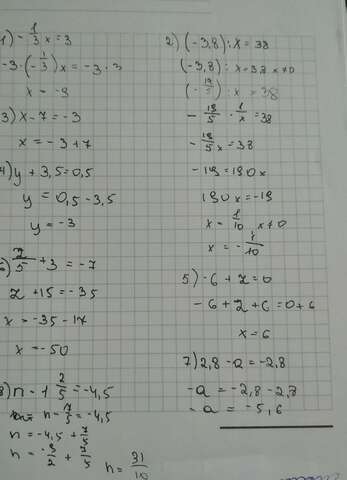 1) - 1/3 x = 3
-3 · (- 1/3) x = -3 · 3
x = -9
3) x - 7 = -3
x = -3 + 7
4) y + 3,5 = 0,5
y = 0,5 - 3,5
y = -3
6) z/5 + 3 = -7
z + 15 = -35
x = -35 - 17
x = -50
8) n - 1 2/5 = -4,5
n - 7/5 = -4,5
n = -4,5 + 7/5
n = -9/2 + 7/5
n = 31/10
2) (-3,8) : x = 38
(-3,8) : x = 38 x ≠ 0
(- 19/5) : x = 38
- 19/5 · 1/x = 38
- 19/5x = 38
-19 = 190x
190x = -19
x = 1/10 x ≠ 0
x = - 1/10
5) -6 + z = 0
-6 + z + 6 = 0 + 6
x = 6
7) 2,8 - a = -2,8
-a = -2,8 - 2,8
-a = -5,6